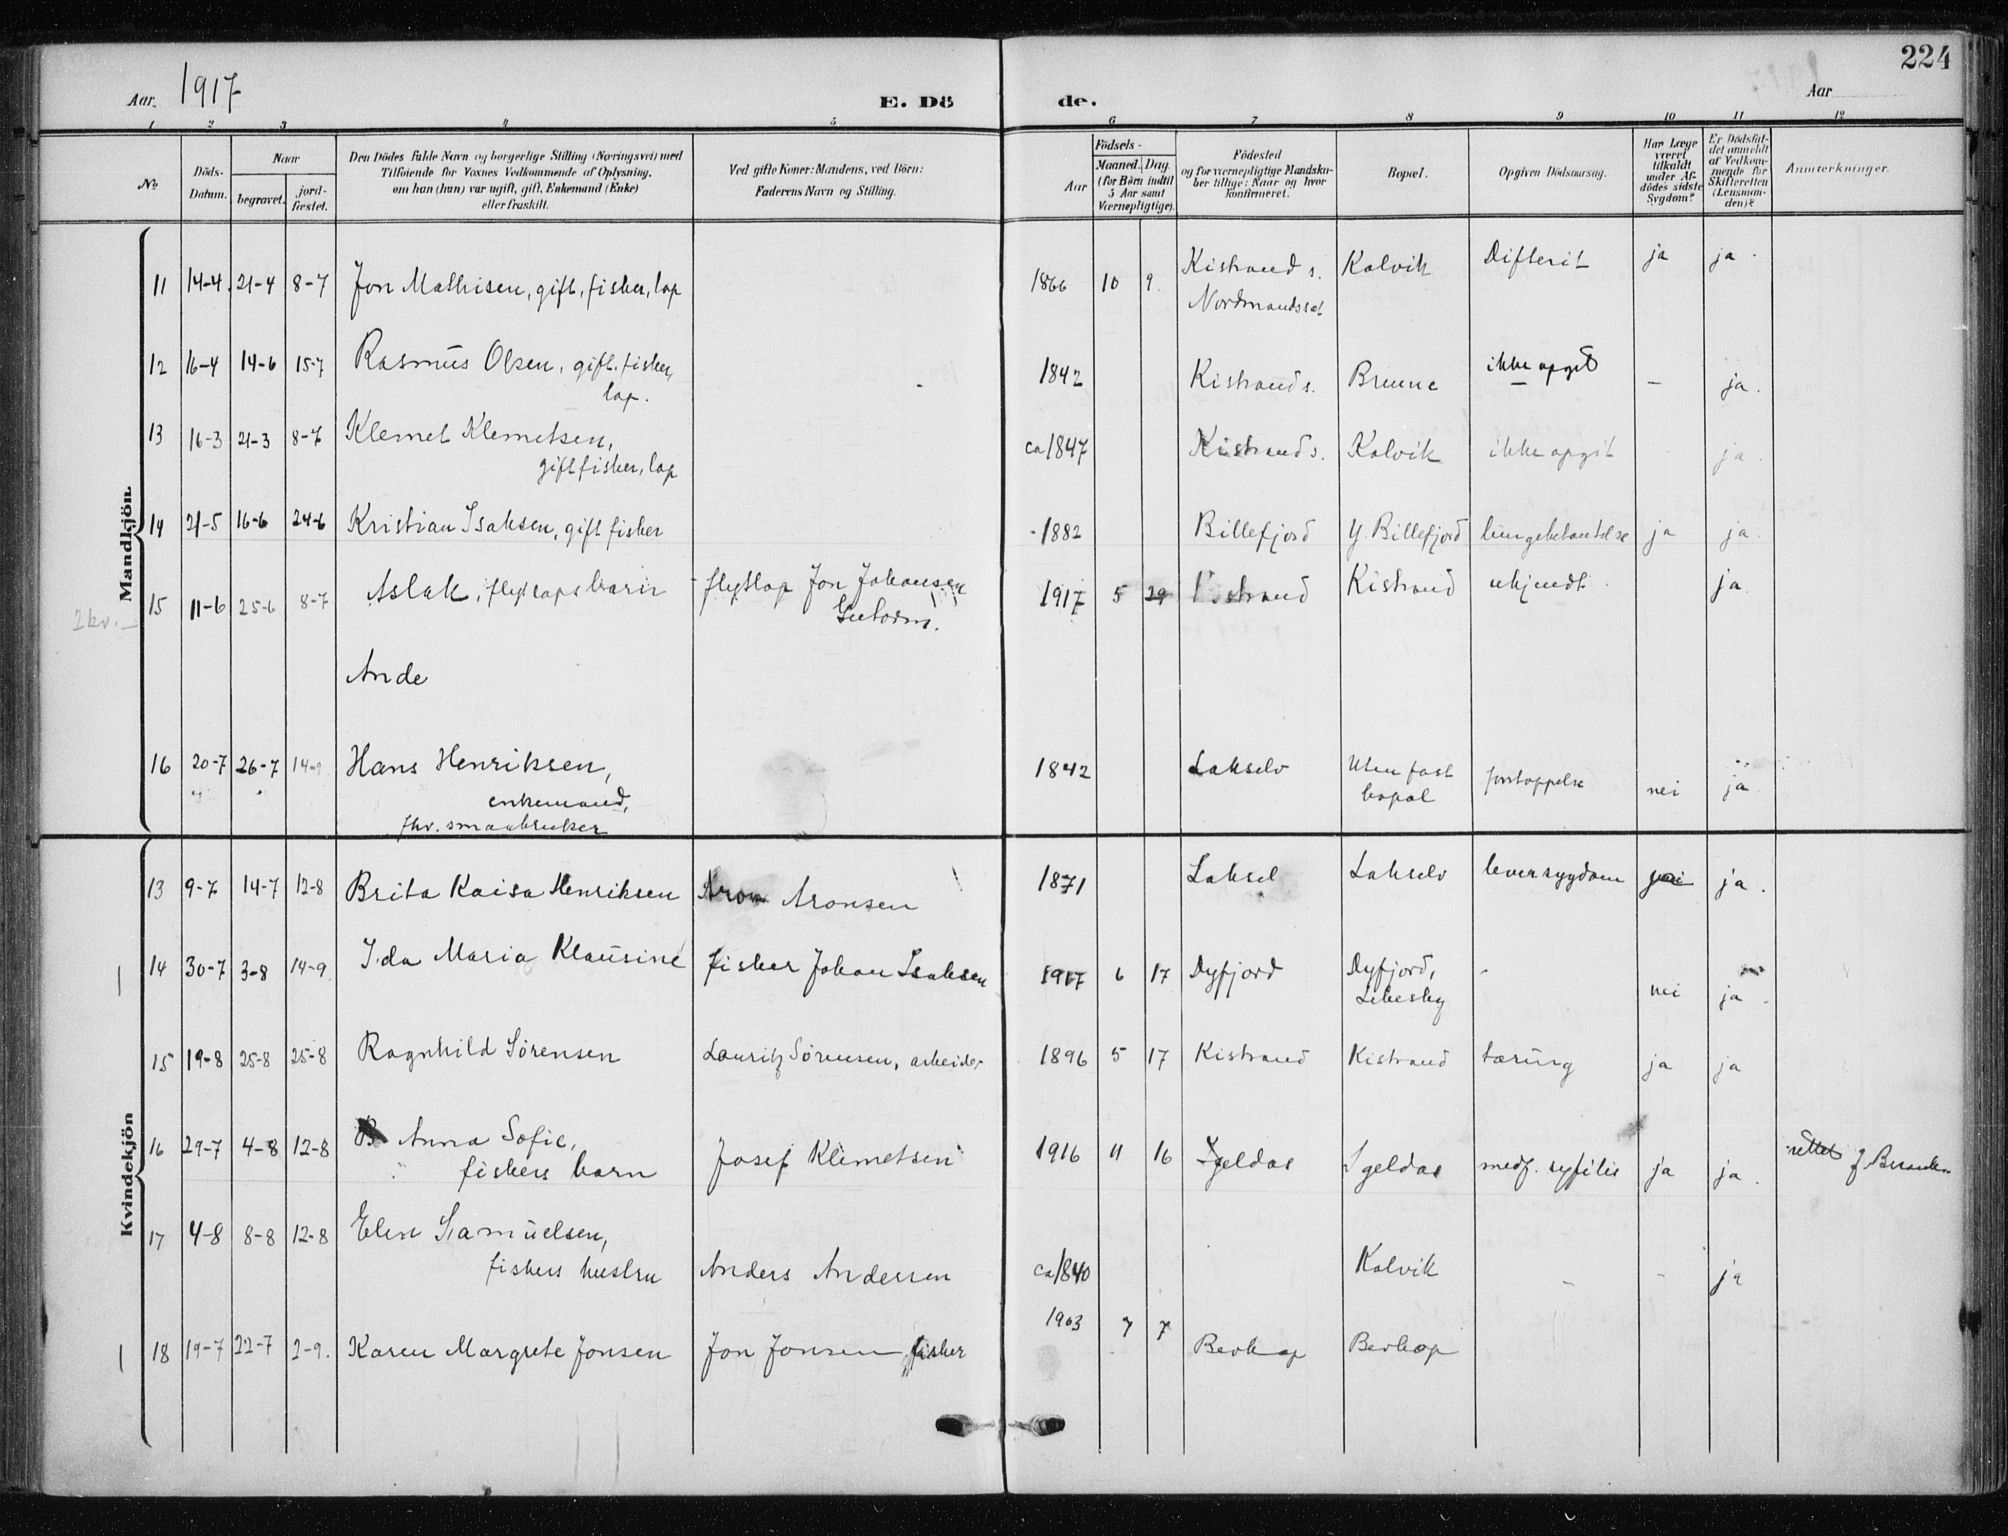 224
Aar. 1917
E. Dö
de.
Aar
1 2 3 4 5 6 7 8 9 10 11 12
No
Döds-
Datum.
Naar
begravet.
jord-
fæstet.
Den Dödes fulde Navn og borgerlige Stilling (Næringsvei) med
Tilföiende for Voxnes Vedkommende af Oplysning,
om han (hun) var ugift, gift, Enkemand (Enke)
eller fraskilt.
Ved gifte Koner: Mandens, ved Börn:
Faderens Navn og Stilling.
Födsels-
Aar
Maaned. Dag.
(for Börn indtil
5 Aar samt
Værnepligtige).
Födested
og for værnepligtige Mandska-
ber tillige: Naar og hvor
konfirmeret.
Bopæl.
Opgiven Dödsaarsag.
Har Læge
været
tilkaldt
under Af-
dödes sidste
Sygdom?
Er Dödsfal-
det anmeldt
af Vedkom-
mende for
Skifteretten
(Lensman-
den)?
Anmerkninger.
Mandkjön.
11 14-4 21-4 8-7 Jon Mathisen, gift, fisker, lap 1866 10 9. Kistrand s. Kolvik Difterit ja ja.
Nordmandsset
12 16-4 14-6 15-7 Rasmus Olsen, gift. fisker, 1842 Kistrand s. Brenne ikke opgit - ja.
lap.
13 16-3 21-3 8-7 Klemet Klemetsen, ca 1847 Kistrand s. Kolvik ikke opgit ja.
gift fisker, lap
14 21-5 16-6 24-6 Kristian Isaksen, gift fisker 1882 Billefjord Y. Billefjord lungebetændelse ja ja.
2 kv. 15 11-6 25-6 8-7 Aslak, flytlaps barn flytlap Jon Johansen 1917 5 29 Kistrand Kistrand ukjendt ja
Guttorm.
Ande
16 20-7 26-7 14-9 Hans Henriksen, 1842 Lakselv Uten fast forstoppelse nei ja
enkemand, bopæl
fhv. smaabruker
Kvindekjön
13 9-7 14-7 12-8 Brita Kaisa Henriksen Aron Aronsen 1871 Laksel Lakselv leversygdom ja.
14 30-7 3-8 14-9 Ida Maria Klausine fisker Johan Isaksen 1917 6 17 Dyfjord Dyfjord, - nei ja
Lebesby
15 19-8 25-8 25-8 Ragnhild Sørensen Lauritz Sørensen, arbeider 1896 5 17 Kistrand Kistrand tæring ja ja
16 29-7 4-8 12-8 Anna Sofie, Josef Klemetsen 1916 11 16 Igeldas Igeldas medf. syfilis ja ja. rettet
fiskers barn
17 4-8 8-8 12-8 Elen Samuelsen,
fiskers hustru Anders Andersen ca 1840 Kolvik - - ja
18 19-7 22-7 2-9. Karen Margrete Jonsen Jon Jonsen fisker 1903 7 7 Bevkop Bevkop